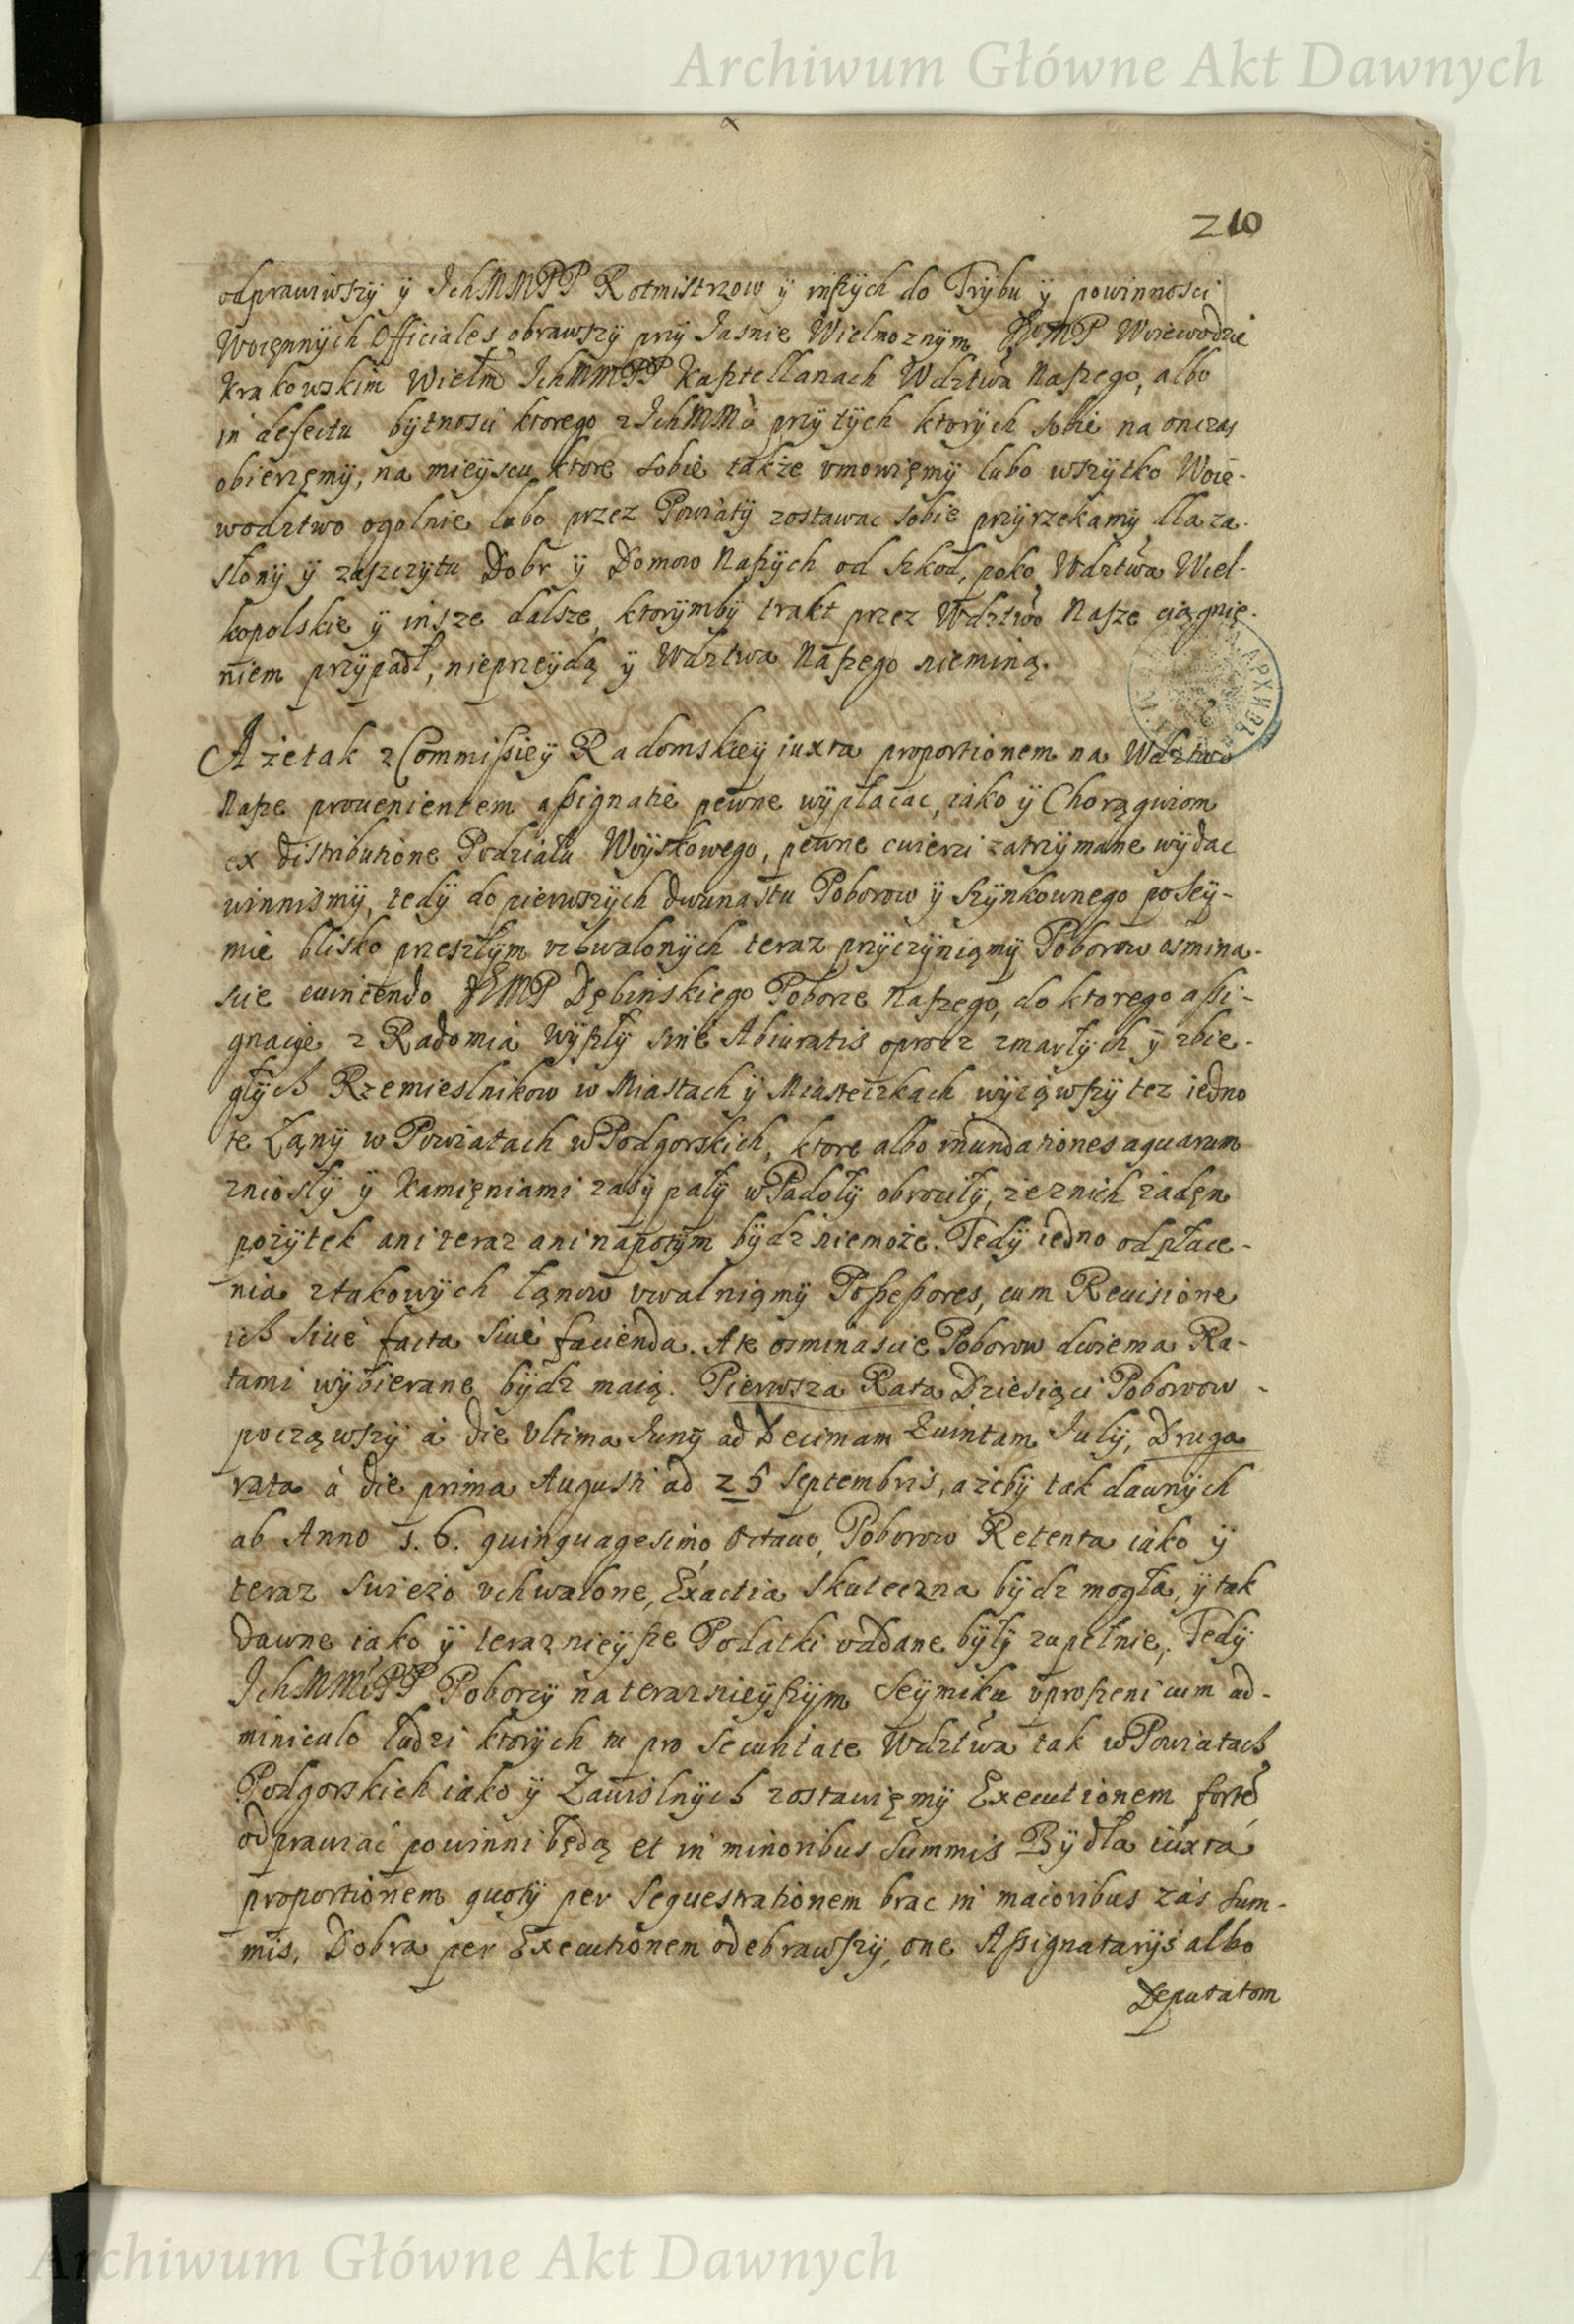 Archiwum Główne Akt Dawnych
210
odprawiwszÿ ÿ IchMMPP Rotmistrzow ÿ inszÿch do Trÿbu ÿ powinnosci
Woięnnÿch Officiales obrawszÿ przÿ Jasnie Wielmoznÿm JeoMP Woiewodzie
Krakowskim Wielm IchMMPP Kasztellanach Wdztwa Naszego, albo
in defectu bÿtnosci ktorego z IchMM przÿ tÿch ktorÿch sobie na onczas
obierzęmÿ, na mieÿscu ktore sobie także vmowięmÿ lubo wszÿtko Woie-
wodztwo ogolnie lubo przez Powiatÿ zostawac sobie przÿrzekamÿ dla za-
słonÿ ÿ zaszczÿtu Dobr ÿ Domow Naszÿch od szkod, poko Wdztwa Wiel-
kopolskie ÿ insze dalsze, ktorÿmbÿ trakt przez Wdztwo Nasze ciągnię-
niem przÿpadł, nieprzeÿdą ÿ Wdztwa Naszego nieminą.
A żetak z Commissieÿ Radomskieÿ iuxta proportionem na Wdztwo
Nasze prouenientem assignatie pewne wÿpłacac, iako ÿ Chorągwiom
ex distributione Podziału Woÿskowego, pewne cwierci zatrzÿmane wÿdac
winnismÿ, tedÿ do pierwszÿch dwunastu Poborow ÿ szÿnkownego po Seÿ-
mie blisko przeszłÿm vchwalonÿch teraz przÿczÿniąmÿ Poborow osmina-
scie euincendo JEMP Dębinskiego Poborce Naszego, do ktorego assi-
gnacÿe z Radomia wÿszłÿ sine Abiuratis oprocz zmarłÿch ÿ zbie-
głÿch Rzemieslnikow w Miastach ÿ Miasteczkach wÿiąwszÿ tez iedno
te Łanÿ w Powiatach w Podgorskich, ktore albo inundationes aquarum
zniosłÿ ÿ Kamięniami zasÿpałÿ w Padołÿ obrociłÿ, że znich żadęn
pożÿtek ani teraz ani napotÿm bÿdz niemoże. Tedÿ iedno od płace-
nia ztakowÿch łanow vwalniąmÿ Possessores, cum Reuisione
ich siue facta siue facienda. A te osminascie Poborow dwiema Ra-
tami wÿbierane bÿdz maią. Pierwsza Rata Dziesiąci Poborow
począwszÿ a die vltima Junÿ ad Decimam Quintam Julÿ, Druga
rata a die prima Augusti ad 25 Septembris, a żebÿ tak dawnÿch
ab Anno 1.6. quinquagesimo Octauo, Poborow Retenta iako ÿ
teraz swieżo vchwalone, Exactia skuteczna bÿdz mogła, ÿ tak
dawne iako ÿ teraznieÿsze Podatki oddane bÿłÿ zupełnie, Tedÿ
IchMMPP Poborcÿ na teraznieÿszÿm Seÿmiku vproszeni cum ad-
miniculo ludzi ktorÿch tu pro securitate Wdztwa tak w Powiatach
Podgorskich iako ÿ Zawislnÿch zostawięmÿ Executionem forte
odprawiać powinni będą et in minoribus summis Bÿdła iuxta
proportionem quotÿ per sequestrationem brac in maioribus zas sum-
mis, Dobra per Executionem odebrawszÿ, one Assignatarÿs albo
Deputatom
Archiwum Główne Akt Dawnych